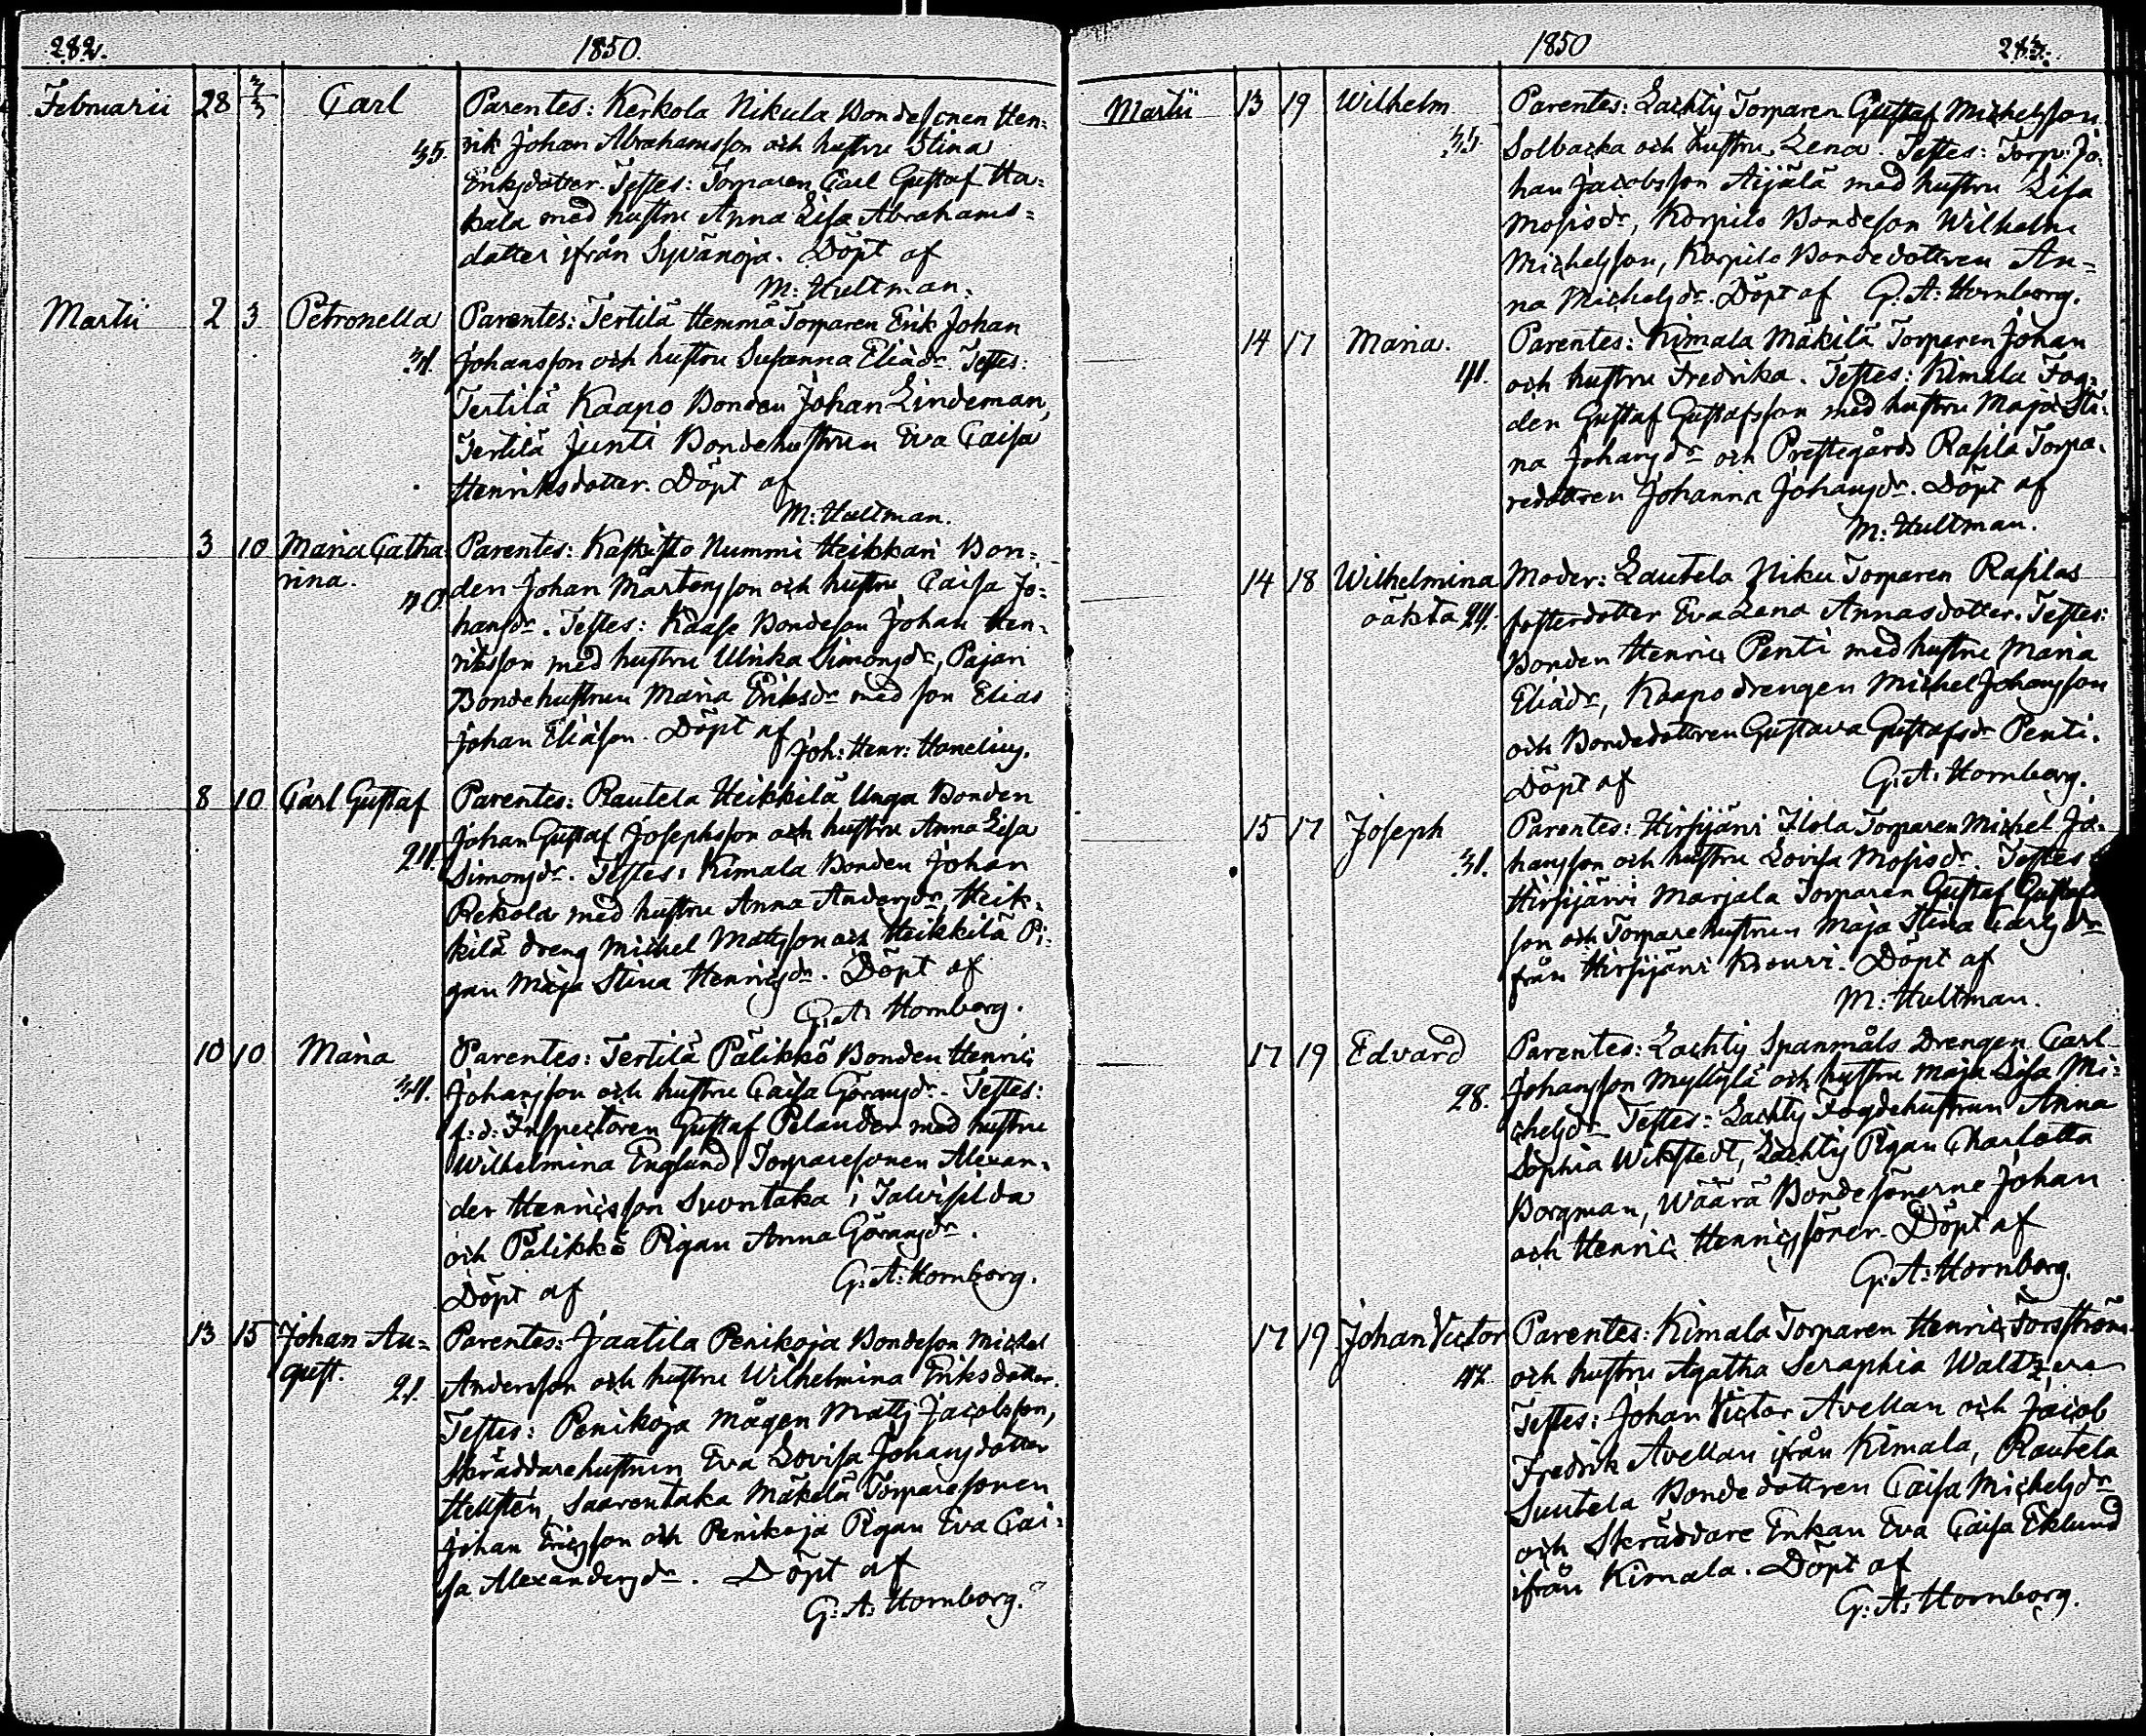 282.
1850.
Februarii 28 3/3 Carl
35.
Parentes: Kerkola Nikula Bondesonen Hen=
rik Johan Abrahamsson och hustru Stina
Eriksdotter. Testes: Torparen Carl Gustaf Ha=
kala med hustru Anna Lisa Abrahams=
dotter ifrån Syvänoja. Döpt af
M: Hultman.
Martii 2 3 Petronella
31.
Parentes: Tertilä Hemmä Torparen Erik Johan
Johansson och hustru Susanna Eliädr. Testes:
Tertilä Kaapo Bonden Johan Lindeman,
Tertilä Junti Bondehustrun Eva Caisa
Henriksdotter. Döpt af
M: Hultman.
3 10 Maria Catha
rina.
40.
Parentes: Nummi Heikkari Bon=
den Johan Mårtensson och hustru Caisa Jo=
hansdr. Testes: Kaase Bondeson Johan Hen=
riksson med hustru Ulrika Simonsdr, Pajari
Bondehustrun Maria Eriksdr med son Elias
Johan Eliäson. Döpt af
Joh: Henr: Honelius.
8 10 Carl Gustaf
24.
Parentes: Rautela Heikkilä Unga Bonden
Johan Gustaf Josephsson och hustru Anna Lisa
Simonsdr. Testes: Kimala Bonden Johan
Rekola med hustru Anna Andersdr, Heik=
kilä dreng Michel Mattsson och Heikkilä Pi=
gan Maja Stina Henricsdr. Döpt af
G: A: Hornborg.
10 10 Maria
34.
Parentes: Tertilä Pälikkö Bonden Henric
Johansson och hustru Caisa Göransdr. Testes:
f: d: Inspectoren Gustaf Pelander med hustru
Wilhelmina Englund, Torparesonen Alexan=
der Henricsson Suontaka i Talvisilda
och Pälikkö Pigan Anna Göransdr.
Döpt af G: A: Hornborg.
13 15 Johan Au=
gust.
21.
Parentes: Jaatila Penikoja Bondeson Michel
Andersson och hustru Wilhelmina Eriksdotter.
Testes: Penikoja Mågen Matts Jacobsson,
Skräddarehustrun Eva Lovisa Johansdotter
Hellstén, Saarentaka Mäkelä Torparesonen
Johan Ericsson och Penikoja Pigan Eva Cai=
sa Alexandersdr. Döpt af
G: A: Hornborg.
1850
283.
Martii 13 19 Wilhelm
35.
Parentes: Lachty Torparen Gustaf Michelsson
Solbacka och hustru Lena. Testes: Torp: Jo=
han Jacobsson Äijälä med hustru Lisa
Mosisdr, Korpilo Bondeson Wilhelm
Michelsson, Korpilo Bondedottren An=
na Michelsdr. Döpt af G: A: Hornborg.
14 17 Maria.
41.
Parentes: Kimala Mäkilä Torparen Johan
och hustru Fredrika. Testes: Kimala Fog=
den Gustaf Gustafsson med hustru Maja Sti=
na Johansdr och Prestegårds Rasila Torpa=
redottren Johanna Johansdr. Döpt af
M: Hultman.
14 18 Wilhelmina
oäkta 24.
Moder: Lautela Niku Torparen Rasilas
fosterdotter Eva Lena Annasdotter. Testes:
Bonden Henric Penti med hustru Maria
Eliädr, Kaapo drengen Michel Johansson
och Bondedottren Gustava Gustafsdr Penti.
Döpt af G: A: Hornborg.
15 17 Joseph
31.
Parentes: Hirsijärvi Ilola Torparen Michel Jo=
hansson och hustru Lovisa Mosisdr. Testes
Hirsijärvi Marjala Torparen Gustaf Gustafs
son och Torparehustrun Maja Stina Carlsdr
från Hirsijärvi Knouri. Döpt af
M: Hultman.
17 19 Edvard
28.
Parentes: Lachty Spanmåls Drengen Carl
Johansson Myllylä och hustru Maja Lisa Mi=
chelsdr. Testes: Lachty Fogdehustrun Anna
Sophia Wikstedt, Lachty Pigan Charlotta
Borgman, Wäärä Bondesönerne Johan
och Henric Henricssöner. Döpt af
G: A: Hornborg.
17 19 Johan Victor
42.
Parentes: Kimala Torparen Henric Forsström
och hustru Agatha Seraphia
Testes: Johan Victor Avellan och Jacob
Fredrik Avellan ifrån Kimala, Rautela
Suutela Bondedottren Caisa Michelsdr
och Skräddare Enkan Eva Caisa Eklund
ifrån Kimala. Döpt af
G: A: Hornborg.